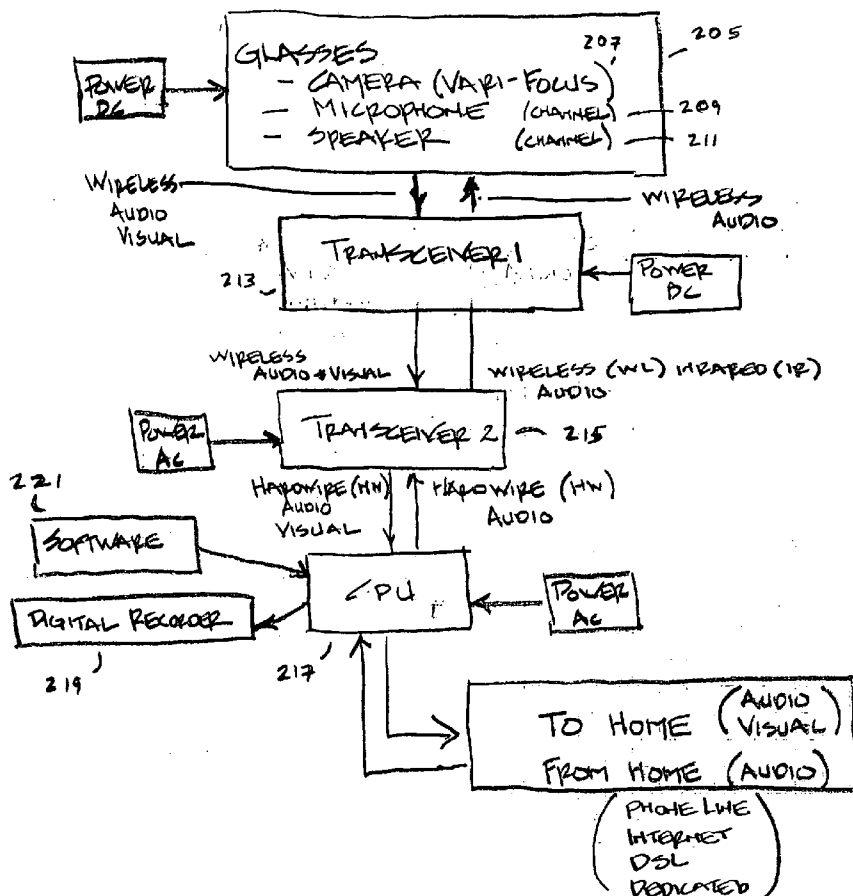 207
205
GLASSES
- CAMERA (VARI-FOCUS)
- MICROPHONE (CHANNEL) 209
- SPEAKER (CHANNEL) 211
POWER
DC
WIRELESS
AUDIO
VISUAL
WIRELESS
AUDIO
TRANSCEIVER 1
213
POWER
DC
WIRELESS
AUDIO + VISUAL
WIRELESS (WL) INFRARED (IR)
AUDIO
POWER
AC
TRANSCEIVER 2
215
HARDWIRE (HW)
AUDIO
VISUAL
HARDWIRE (HW)
AUDIO
221
SOFTWARE
CPU
POWER
AC
DIGITAL RECORDER
219
217
TO HOME (AUDIO
VISUAL)
FROM HOME (AUDIO)
(PHONE LINE
INTERNET
DSL
DEDICATED)